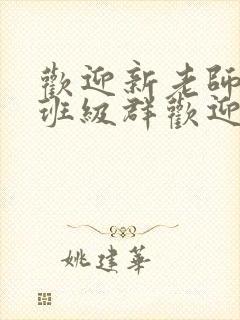 歡迎新老師
班級群歡迎
姚建華